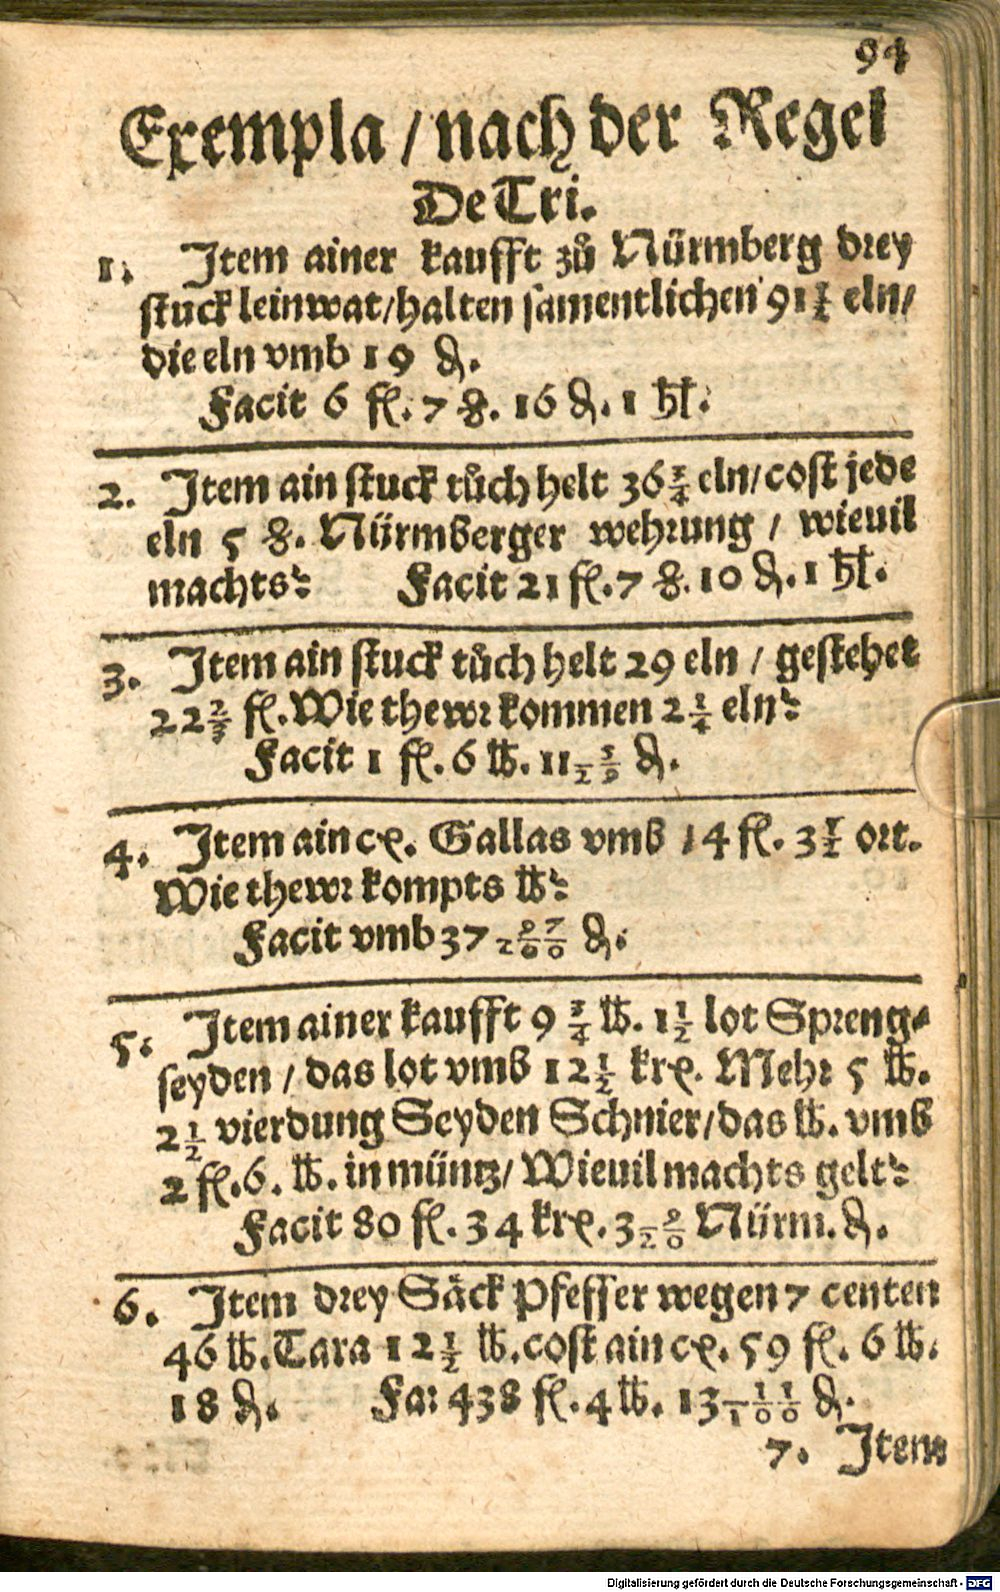 94
Exempla / nach der Regel
De Tri.
1. Item ainer kaufft zů Nürmberg drey
stuck leinwat / halten samentlichen 91 1/2 eln /
die eln vmb 19 ₰.
Facit 6 fl. 7 ℔. 16 ₰. 1 hl.
2. Item ain stuck tůch helt 36 3/4 eln / cost jede
eln 5 ℔. Nürmberger wehrung / wieuil
machts? Facit 21 fl. 7 ℔. 10 ₰. 1 hl.
3. Item ain stuck tůch helt 29 eln / gestehet
22 2/3 fl. Wie thewr kommen 2 1/4 eln?
Facit 1 fl. 6 ℔. 11 5/29 ₰.
4. Item ain cx. Gallas vmb 14 fl. 3 1/2 ort.
Wie thewr kompts ℔?
Facit vmb 37 97/200 ₰.
5. Item ainer kaufft 9 3/4 ℔. 1 1/2 lot Spreng-
seyden / das lot vmb 12 1/2 krx. Mehr 5 ℔.
2 1/2 vierdung Seyden Schnier / das ℔. vmb
2 fl. 6. ℔. in müntz / Wieuil machts gelt?
Facit 80 fl. 34 krx. 3 9/20 Nürm. ₰.
6. Item drey Säck Pfeffer wegen 7 centen
46 ℔. Tara 12 1/2 ℔. cost ain cx. 59 fl. 6 ℔.
18 ₰. Fa: 438 fl. 4 ℔. 13 11/100 ₰.
7. Item
Digitalisierung gefördert durch die Deutsche Forschungsgemeinschaft - DFG